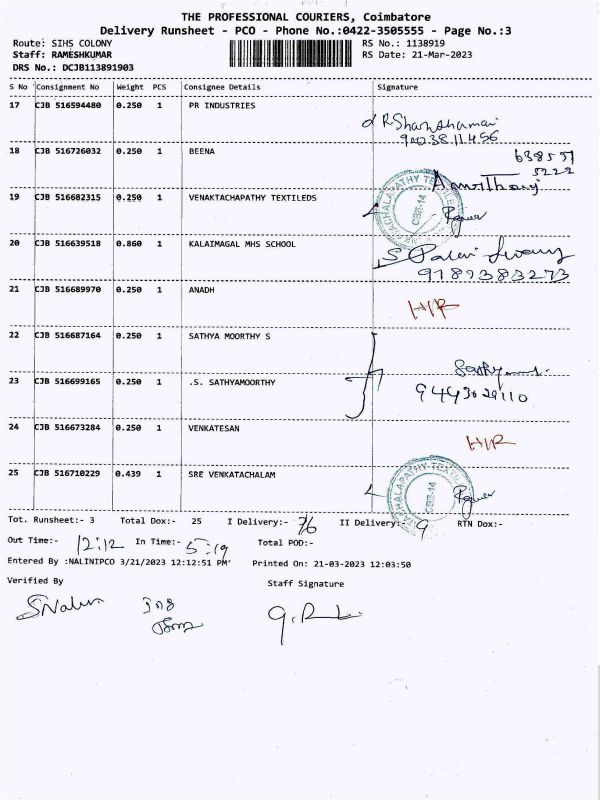 THE PROFESSIONAL COURIERS, Coimbatore
Delivery Runsheet - PCO - Phone No.:0422-3505555 - Page No.:3
Route: SIHS COLONY
RS No.: 1138919
Staff: RAMESHKUMAR
RS Date: 21-Mar-2023
DRS No.: DCJB113891903
S No Consignment No Weight PCS Consignee Details Signature
17 CJB 516594480 0.250 1 PR INDUSTRIES
18 CJB 516726032 0.250 1 BEENA
19 CJB 516682315 0.250 1 VENAKTACHAPATHY TEXTILEDS
20 CJB 516639518 0.860 1 KALAIMAGAL MHS SCHOOL
9189383273
21 CJB 516689970 0.250 1 ANADH
H/R
22 CJB 516687164 0.250 1 SATHYA MOORTHY S
23 CJB 516699165 0.250 1 .S. SATHYAMOORTHY
9443029110
24 CJB 516673284 0.250 1 VENKATESAN
H/R
25 CJB 516710229 0.439 1 SRE VENKATACHALAM
Tot. Runsheet:- 3 Total Dox:- 25 I Delivery:- II Delivery:- 9 RTN Dox:-
Out Time:- 12:12 In Time:- 5:19 Total POD:-
Entered By :NALINIPCO 3/21/2023 12:12:51 PM Printed On: 21-03-2023 12:03:50
Verified By Staff Signature